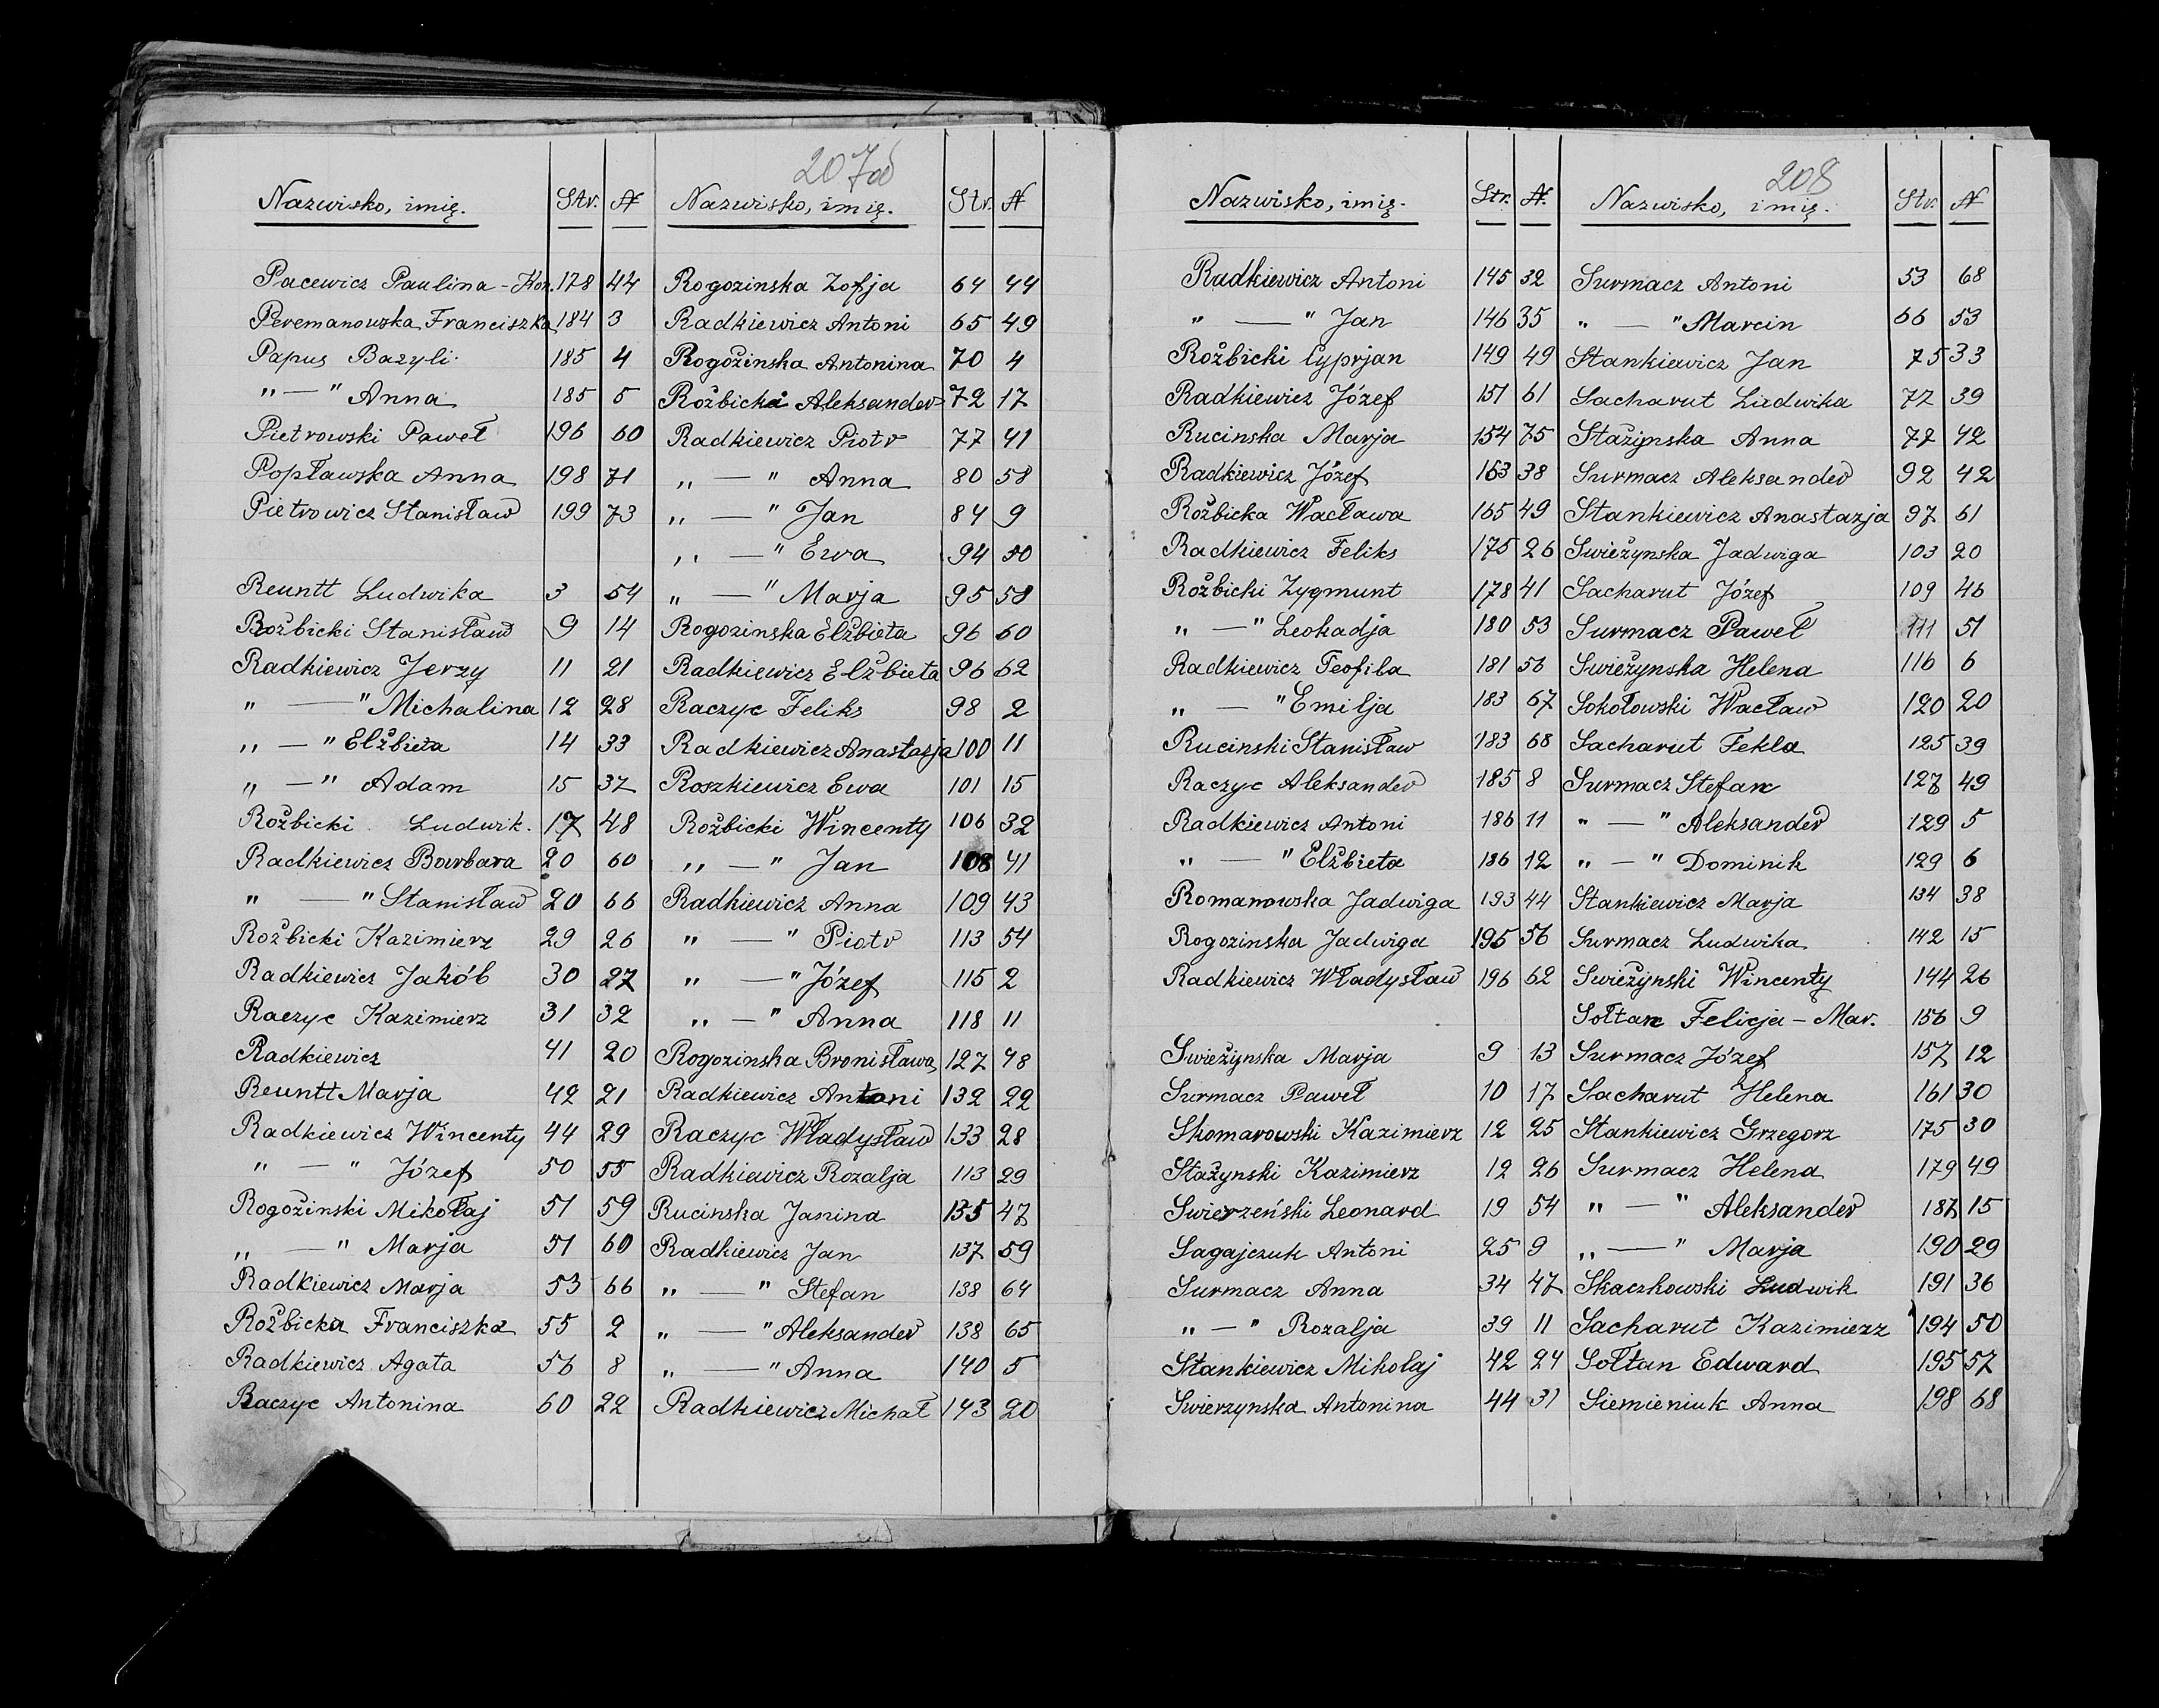 207об
Nazwisko, imię. Str. №
Pacewicz Paulina - Kon. 178 44
Peremanowska Franciszka 184 3
Papus Bazyli 185 4
" — " Anna 185 5
Pietrowski Paweł 196 60
Popławska Anna 198 71
Pietrowicz Stanisław 199 73
Reuntt Ludwika 3 54
Rożbicki Stanisław 9 14
Radkiewicz Jerzy 11 21
" — " Michalina 12 28
" — " Elżbieta 14 33
" — " Adam 15 37
Rożbicki Ludwik. 17 48
Radkiewicz Barbara 20 60
" — " Stanisław 20 66
Rożbicki Kazimierz 29 26
Radkiewicz Jakób 30 27
Raczyc Kazimierz 31 32
Radkiewicz 41 20
Reuntt Marja 42 21
Radkiewicz Wincenty 44 29
" — " Józef 50 55
Rogożinski Mikołaj 51 59
" — " Marja 51 60
Radkiewicz Marja 53 66
Rożbicka Franciszka 55 2
Radkiewicz Agata 56 8
Raczyc Antonina 60 22
Nazwisko, imię. Str. №
Rogozinska Zofja 64 44
Radkiewicz Antoni 65 49
Rogożinska Antonina 70 4
Rożbicki Aleksander 72 17
Radkiewicz Piotr 77 41
" — " Anna 80 58
" — " Jan 84 9
" — " Ewa 94 50
" — " Marja 95 58
Rogozinska Elżbieta 96 60
Radkiewicz Elżbieta 96 62
Raczyc Feliks 98 2
Radkiewicz Anastazja 100 11
Roszkiewicz Ewa 101 15
Rożbicki Wincenty 106 32
" — " Jan 108 41
Radkiewicz Anna 109 43
" — " Piotr 113 54
" — " Józef 115 2
" — " Anna 118 11
Rogozinska Bronisława 127 48
Radkiewicz Antoni 132 22
Raczyc Władysław 133 28
Radkiewicz Rozalja 113 29
Rucinska Janina 135 47
Radkiewicz Jan 137 59
" — " Stefan 138 64
" — " Aleksander 138 65
" — " Anna 140 5
Radkiewicz Michał 143 20
208
Nazwisko, imię. Str. №
Radkiewicz Antoni 145 32
" — " Jan 146 35
Rożbicki Cyprjan 149 49
Radkiewicz Józef 151 61
Rucinska Marja 154 75
Radkiewicz Józef 163 38
Rożbicka Wacława 165 49
Radkiewicz Feliks 175 26
Rożbicki Zygmunt 178 41
" — " Leokadja 180 53
Radkiewicz Teofila 181 56
" — " Emilja 183 67
Rucinski Stanisław 183 68
Raczyc Aleksander 185 8
Radkiewicz Antoni 186 11
" — " Elżbieta 186 12
Romanowska Jadwiga 193 44
Rogozinska Jadwiga 195 56
Radkiewicz Władysław 196 62
Swieżynska Marja 9 13
Surmacz Paweł 10 17
Skomarowski Kazimierz 12 25
Stażynski Kazimierz 12 26
Swierzeński Leonard 19 54
Sagajczuk Antoni 25 9
Surmacz Anna 34 47
" — " Rozalja 39 11
Stankiewicz Mikołaj 42 24
Swierzynska Antonina 44 31
Nazwisko, imię. Str. №
Surmacz Antoni 53 68
" — " Marcin 66 53
Stankiewicz Jan 75 33
Sacharut Ludwika 77 39
Stażynska Anna 77 42
Surmacz Aleksander 92 42
Stankiewicz Anastazja 97 61
Swieżynska Jadwiga 103 20
Sacharut Józef 109 46
Surmacz Paweł 111 51
Swieżynska Helena 116 6
Sokołowski Wacław 120 20
Sacharut Tekla 125 39
Surmacz Stefan 127 49
" — " Aleksander 129 5
" — " Dominik 129 6
Stankiewicz Marja 134 38
Surmacz Ludwika 142 15
Swieżynski Wincenty 144 26
Sołtan Felicja - Mar. 156 9
Surmacz Józef 157 12
Sacharut Helena 161 30
Stankiewicz Grzegorz 175 30
Surmacz Helena 179 49
" — " Aleksander 187 15
" — " Marja 190 29
Skaczkowski Ludwik 191 36
Sacharut Kazimierz 194 50
Sołtan Edward 195 57
Siemieniuk Anna 198 68